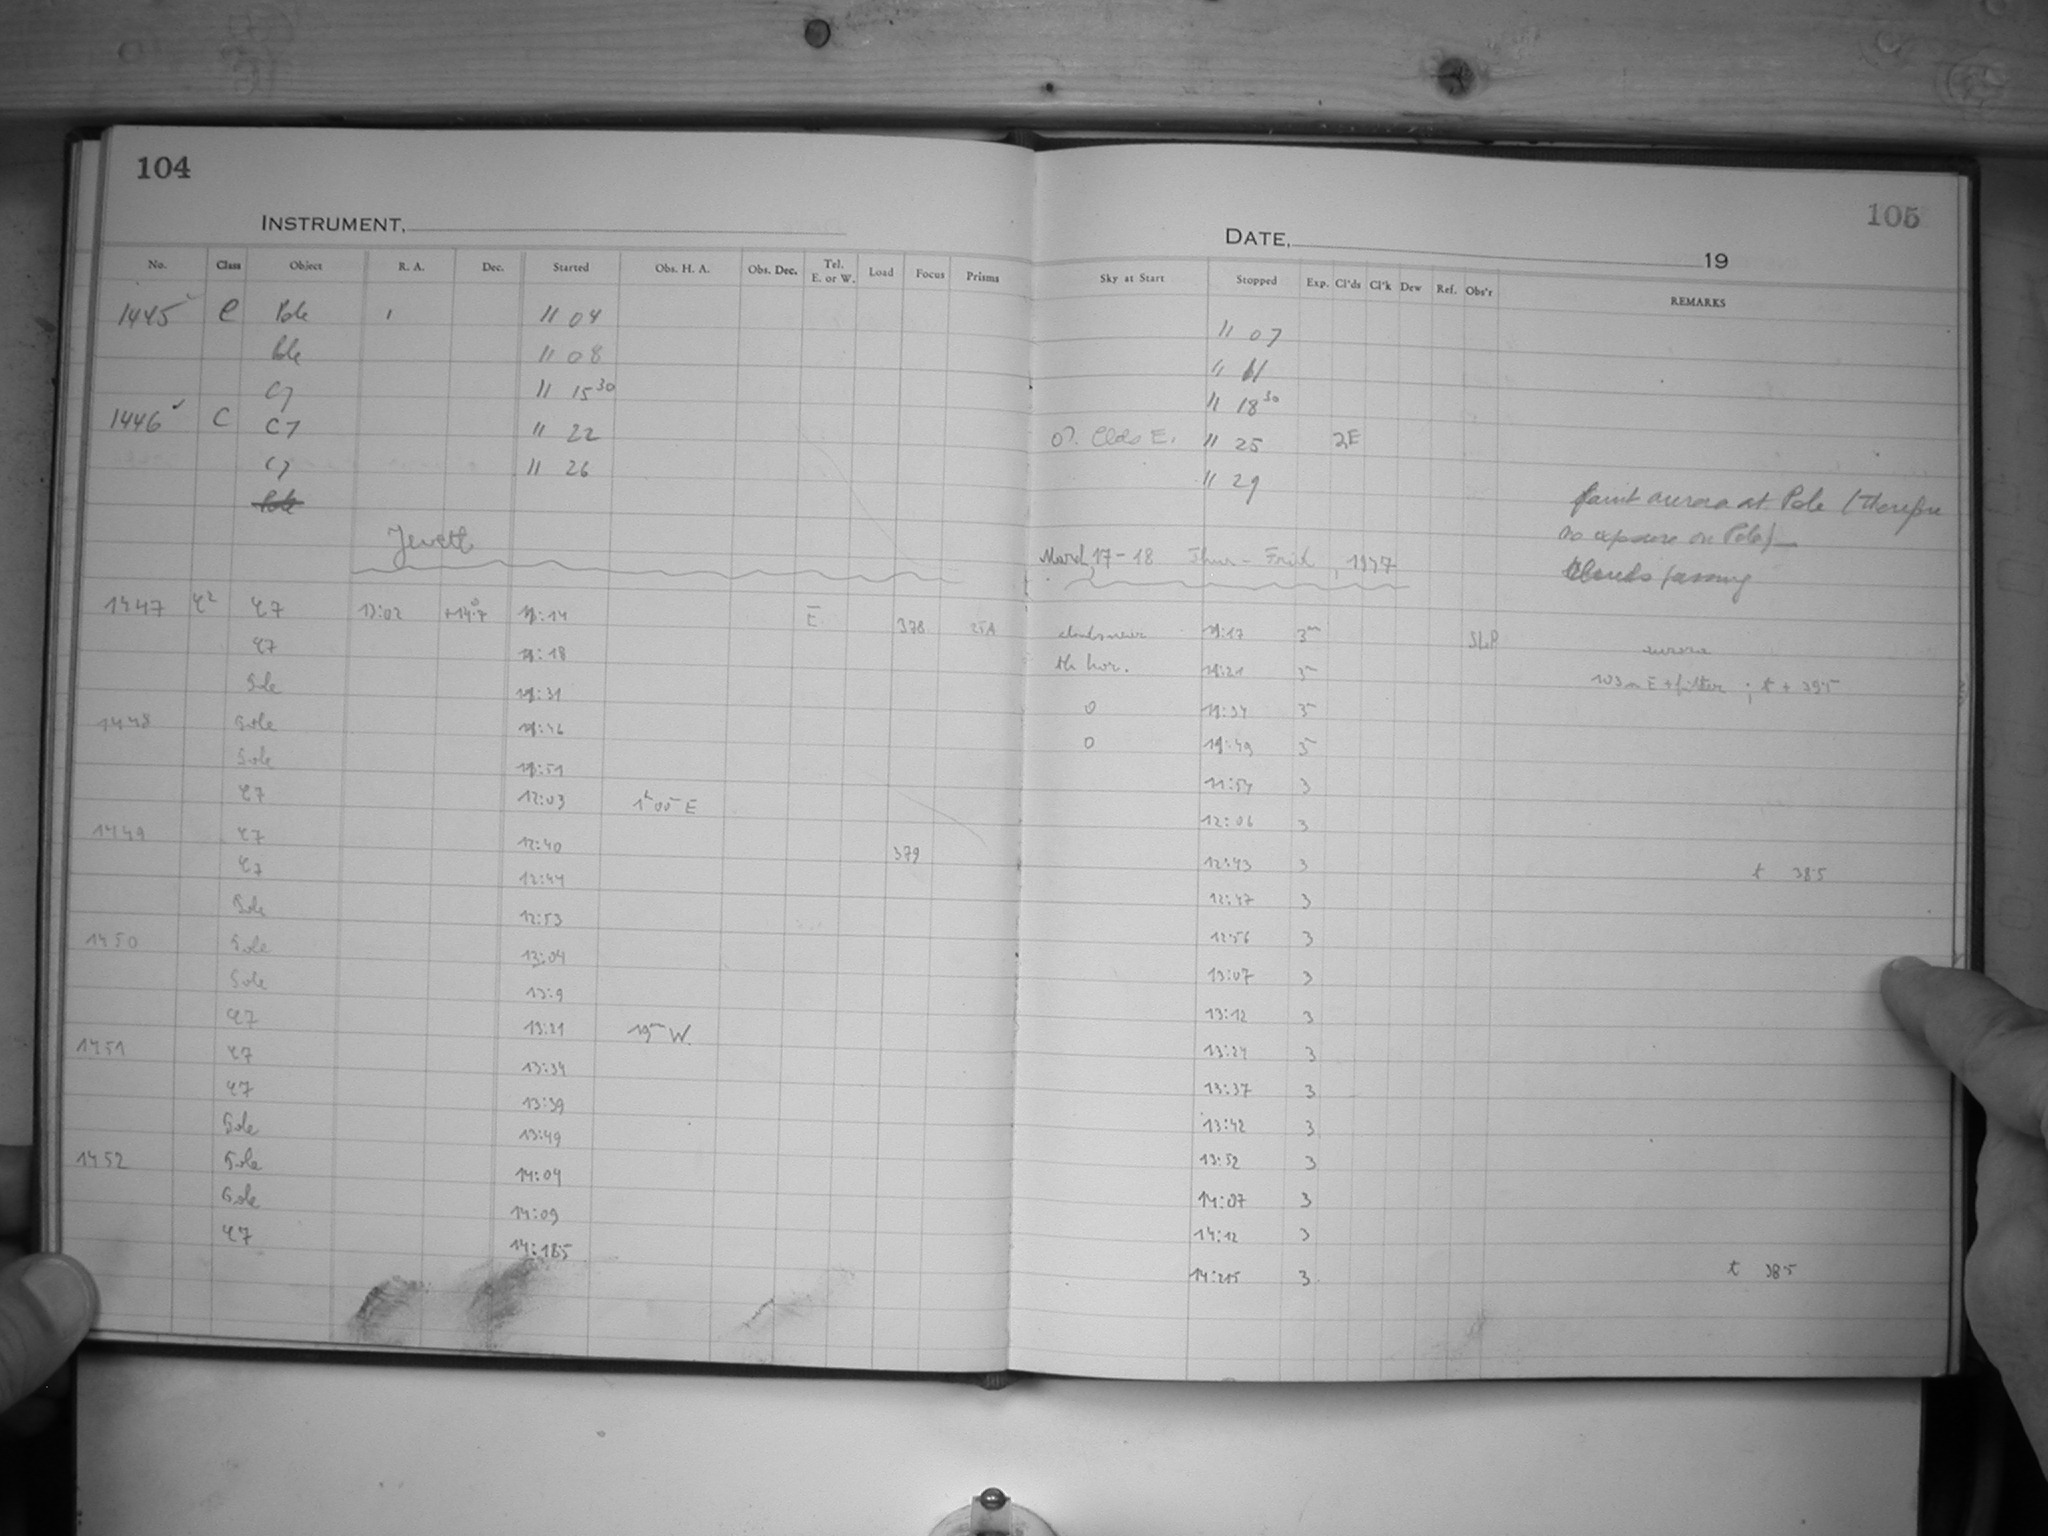 104
INSTRUMENT,
No. Class Object R. A. Dec. Started Obs. H. A. Obs. Dec. Tel. E. or W. Load Focus Prisms
1445 C Pole 11 04
Pole 11 08
C7 11 15 30
1446 C C7 11 22
C7 11 26
Pole
Jewett
1447 C2 C7 13:02 +14.7 11:14 E 378 25A
C7 11:18
Pole 11:31
1448 Pole 11:46
Pole 11:51
C7 12:03 1h 00m E
1449 C7 12:40 379
C7 12:44
Pole 12:53
1450 Pole 13:04
Pole 13:9
C7 13:21 19m W.
1451 C7 13:34
C7 13:39
Pole 13:49
1452 Pole 14:04
Pole 14:09
C7 14:18.5
105
DATE, 19
Sky at Start Stopped Exp. Cl'ds Cl'k Dew Ref. Obs'r REMARKS
11 07
11 11
11 18 30
0?. Clds E. 11 25 2E
11 29
faint aurora at Pole (therefore
no exposure on Pole) —
Clouds passing
March 17-18 Thur - Frid, 1947
clouds near 11:17 3m SLP aurora
the hor. 11:21 3 103a E + filter ; t + 39.5
0 11:34 3
0 11:49 3
11:54 3
12:06 3
12:43 3 t 38.5
12:47 3
12:56 3
13:07 3
13:12 3
13:24 3
13:37 3
13:42 3
13:52 3
14:07 3
14:12 3
14:21.5 3 t 38.5